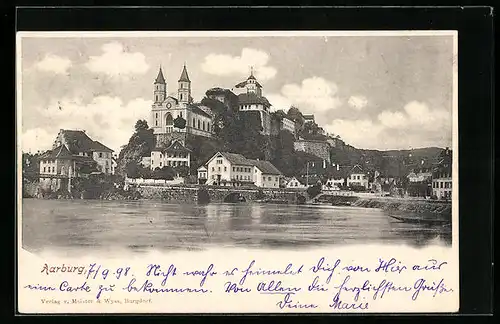 Aarburg, 7/9. 98. Nicht wahr es heimelet Dich von Hier aus
eine Carte zu bekommen. Von Allen die herzlichsten Grüsse
Deine Marie
Verlag v. Meister & Wyss, Burgdorf.